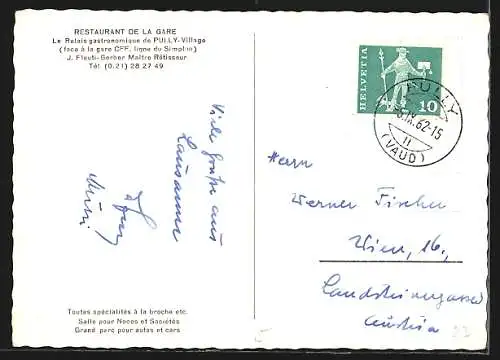 RESTAURANT DE LA GARE
Le Relais gastronomique de PULLY-Village
(face à la gare CFF, ligne du Simplon)
J. Fleuti-Gerber Maître Rôtisseur
Tél. (0.21) 28 27 49
HELVETIA
10
PULLY
IX.62-15
11
(VAUD)
Viele Grüsse aus
Lausanne
Herrn
Werner Fischer
Wien, 16.,
Austria
Toutes spécialités à la broche etc.
Salle pour Noces et Sociétés
Grand parc pour autos et cars